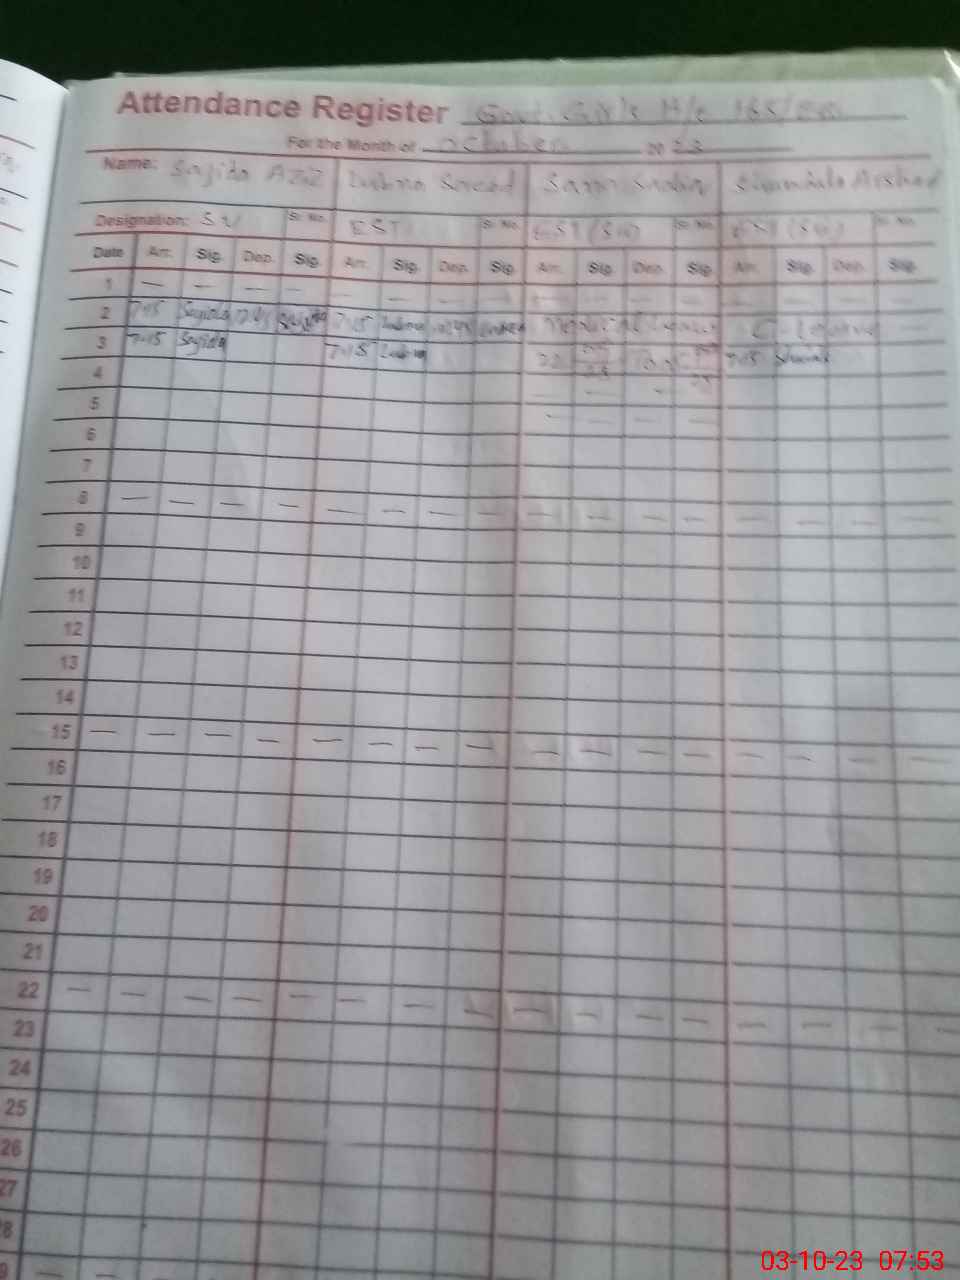 Attendance Register Govt. Girls H/S
For the Month of October 20 23
Name: Sajida Aziz Lubna Saeed
Designation: Sr. No. EST Sr. No. EST Sr. No. EST Sr. No.
Date Arr. Sig. Dep. Sig. Arr. Sig. Dep. Sig. Arr. Sig. Dep. Sig. Arr. Sig. Dep. Sig.
1 — — — — — — — — — — — — — — —
2 7-15 Sajida 12.45 Sajida 7-15 Lubna 12.45 Lubna Medical Leave C-Leave
3 7-15 Sajida 7-15 Lubna 7-15
4 — — —
5 — — — —
6
7
8 — — — — — — — — — — — — — — — —
9
10
11
12
13
14
15 — — — — — — — — — — — — — — — —
16
17
18
19
20
21
22 — — — — — — — — — — — — — — — —
23
24
25
26
27
28
03-10-23 07:53